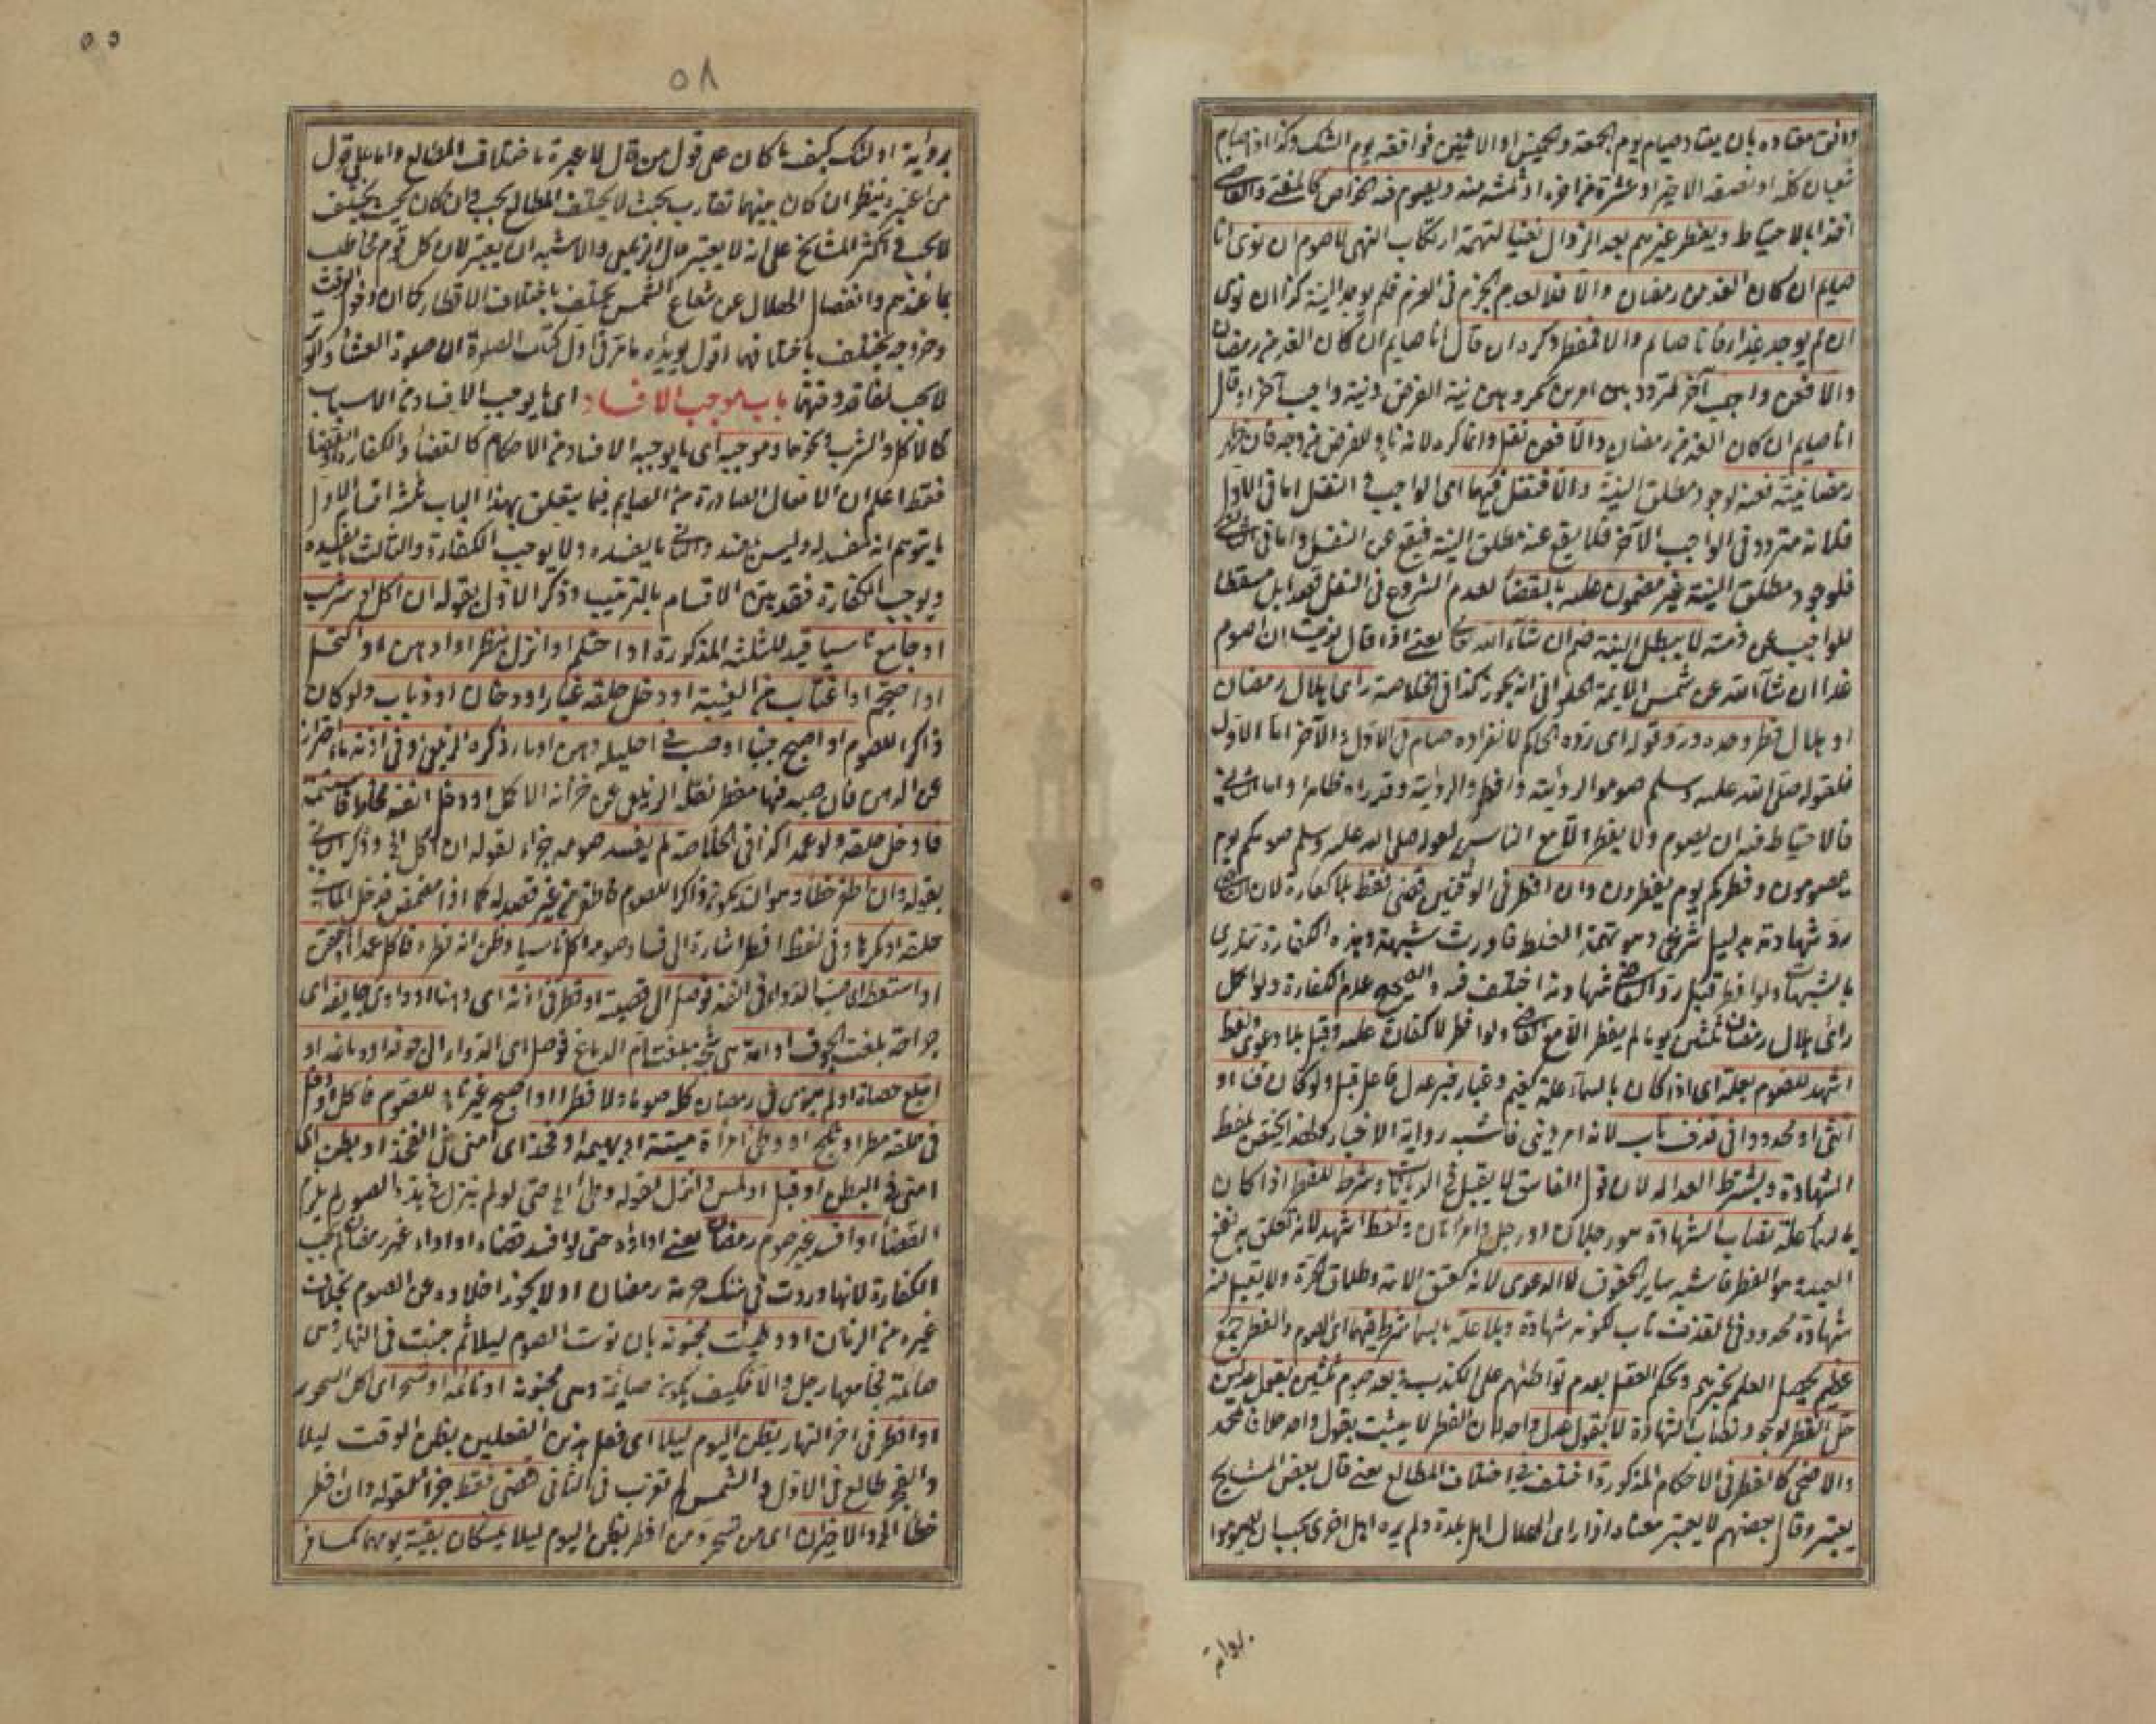 وافق معتاده بان يعتاد صيام يوم الجمعة والخميس او الاثنين فوافقه يوم الشك وكذا اذا صام
شعبان كله او نصفه الاخير او عشرة من اخره او ثلثة منه ويصوم فيه الخواص كالمفتي والقاضي
اخذا بالاحتياط ويفطر غيرهم بعد الزوال نفيا لتهمة ارتكاب النهي لا صوم ان نوى انا
صايم ان كان الغد من رمضان والا فلا لعدم الجزم في العزم فلم يوجد النية كذا ان نوى
ان لم يوجد غداء فانا صايم والا فمفطر وكره ان قال انا صايم ان كان الغد من رمضان
والا فعن واجب آخر لتردده بين امرين مكروهين نية الفرض ونية واجب آخر او قال
انا صايم ان كان الغد من رمضان والا فعن نفل وانما كره لانه ناو للفرض من وجه فان ظهر
رمضانيته فعنه لوجود مطلق النية والا فنفل فيهما اي الواجب والنفل اما في الاول
فلانه متردد في الواجب الآخر فلا يقع عنه مطلق النية فيقع عن النفل واما في الثاني
فلوجود مطلق النية غير مضمون عليه بالقضا لعدم الشروع في النفل قصدا بل مسقطا
للواجب عن ذمته لا يبطل النية ضم ان شاء الله تعالى يعني اذا قال نويت ان اصوم
غدا ان شاء الله عن شمس الايمة الحلواني انه يجوز كذا في الخلاصة راى هلال رمضان
او هلال فطر وحده ورد قوله اي رده الحاكم لانفراده صام في الاول والآخر اما الاول
فلقوله صلى الله عليه وسلم صوموا لرؤيته وافطروا لرؤيته وقد راه ظاهرا واما الثاني
فالاحتياط فيه ان يصوم ولا يفطر الا مع الناس لقوله صلى الله عليه وسلم صومكم يوم
يصومون وفطركم يوم يفطرون وان افطر في الوقتين قضى فقط بلا كفارة لان القاضي
رد شهادته بدليل شرعي وهو تهمة الغلط فاورث شبهة وهذه الكفارة تندرئ
بالشبهات ولو افطر قبل رد القاضي شهادته اختلف فيه والصحيح عدم الكفارة ولو اكمل
رائي هلال رمضان ثلثين يوما لم يفطر الا مع القاضي ولو افطر لا كفارة عليه وقبل بلا دعوى ولفظ
اشهد للصوم بعلة اي اذا كان بالسماء علة كغيم وغبار خبر عدل فاعل قبل ولو كان قنا او
انثى او محدودا في قذف تاب لانه امر ديني فاشبه رواية الاخبار ولهذا لا يختص بلفظ
الشهادة ويشترط العدالة لان قول الفاسق لا يقبل في الديانات وشرط للفطر اذا كان
بالسماء علة نصاب الشهادة هو رجلان او رجل وامرأتان ولفظ اشهد لانه تعلق به نفع
العبيد هو الفطر فاشبه ساير الحقوق لا الدعوى لانه كعتق الامة وطلاق الحرة ولا يقبل فيه
شهادة محدود في القذف تاب لكونه شهادة وبلا علة بالسماء شرط فيهما اي الصوم والفطر جمع
عظيم يحصل العلم بخبرهم وبحكم العقل بعدم تواطئهم على الكذب وبعد صوم ثلثين بقول عدلين
حل الفطر لوجود نصاب الشهادة لا بقول عدل واحد لان الفطر لا يثبت بقول واحد خلافا لمحمد
والاضحى كالفطر في الاحكام المذكورة اختلف في اختلاف المطالع يعني قال بعض المشايخ
يعتبر وقال بعضهم لا يعتبر معناه اذا راى الهلال اهل بلدة ولم يره اهل اخرى يجب ان يصوموا
برواية
٥٥
٥٨
برؤية اولئك كيف ما كان على قول من قال لا عبرة باختلاف المطالع واما على قول
من اعتبره ينظر ان كان بينهما تقارب بحيث لا يختلف المطالع يجب وان كان بحيث يختلف
لا يجب واكثر المشايخ على انه لا يعتبر قال الزيلعي والاشبه ان يعتبر لان كل قوم مخاطب
بما عندهم وانفصال الهلال عن شعاع الشمس يختلف باختلاف الاقطار كما ان دخول الوقت
وخروجه يختلف باختلافها اقول يؤيده ما مر في اول كتاب الصلوة ان صلوة العشاء والوتر
لا يجب لفاقد وقتهما باب موجب الافساد اي ما يوجب الافساد من الاسباب
كالاكل والشرب ونحوهما وموجبه اي ما يوجبه الافساد من الاحكام كالقضاء والكفارة او القضا
فقط اعلم ان الافعال الصادرة من الصايم فيما يتعلق بهذا الباب ثلثة اقسام الاول
ما يتوهم انه مفسد له وليس بمفسد والثاني ما يفسده ولا يوجب الكفارة والثالث ما يفسده
ويوجب الكفارة فقد بين الاقسام بالترتيب وذكر الاول بقوله ان اكل او شرب
او جامع ناسيا قيد للثلثة المذكورة او احتلم او انزل بنظر او ادهن او اكتحل
او احتجم او اغتاب من الغيبة او دخل حلقه غبار او دخان او ذباب ولو كان
ذاكرا للصوم او اصبح جنبا او صب في احليله دهن او ماء ذكره الزيلعي وفي اذنه ماء احتراز
عن الدهن فان صبه فيها مفطر نقله الزيلعي عن خزانة الاكمل او دخل انفه مخاط فاستشمه
فادخل حلقه ولو عمدا كذا في الخلاصة لم يفسد صومه جزاء لقوله ان اكل الخ وذكر الثاني
بقوله وان افطر خطأ وهو ان يكون ذاكرا للصوم فافطر من غير قصد له كما اذا مضمض فدخل الماء
حلقه او مكرها وفي لفظ افطر اشارة الى فساد صومه او اكل ناسيا وظن انه فطره فاكل عمدا او احتقن
او استعط اي صب الدواء في انفه فوصل الى قصبته او قطر في اذنه اي دهنا او داوى جايفة اي
جراحة بلغت الجوف او آمة هي شجة بلغت ام الدماغ فوصل اي الدواء الى جوفه او دماغه او
ابتلع حصاة او لم ينو في رمضان كله صوما ولا فطرا او اصبح غير ناو للصوم فاكل او دخل
في حلقه مطر او ثلج او وطئ امرأة ميتة او بهيمة او فخذ اي امنى في الفخذ او بطن اي
امنى في البطن او قبل او لمس وانزل لقوله وطئ الخ حتى لو لم ينزل في هذه الصور لم يلزم
القضا او افسد غير صوم رمضان يعني اداؤه حتى لو افسد قضاء او اداء غير رمضان لم يجب
الكفارة لانها وردت في هتك حرمة رمضان اذ لا يجوز اخلاؤه عن الصوم بخلاف
غيره من الزمان او وطئت مجنونة بان نوت الصوم ليلا ثم جنت في النهار وهي
صائمة فجامعها رجل والا فكيف يكون صائمة وهي مجنونة او نائمة او تسحر اي اكل السحور
او افطر في اخر النهار يظن اليوم ليلا اي فعل هذين الفعلين يظن الوقت ليلا
والفجر طالع في الاول والشمس لم تغرب في الثاني قضى فقط جزاء لقوله وان افطر
خطأ الخ والاخيران اي من تسحر ومن افطر يظن اليوم ليلا يمسكان بقية يومهما كمسافر